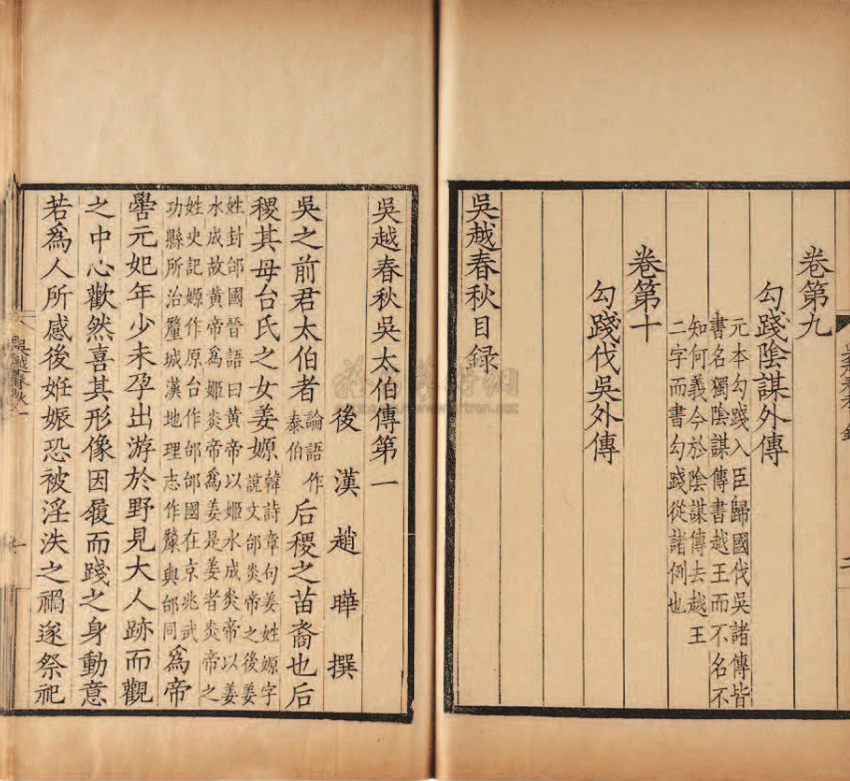 卷第九
勾踐陰謀外傳
元本勾踐入臣歸國伐吳諸傳皆
書名獨陰謀傳書越王而不名不
知何義今於陰謀傳去越王
二字而書勾踐從諸例也
卷第十
勾踐伐吳外傳
吳越春秋目録
吳越春秋吳太伯傳第一
後漢趙曄撰
吳之前君太伯者
論語作
泰伯
后稷之苗裔也后
稷其母台氏之女姜嫄
韓詩章句姜姓嫄字
說文邰炎帝之後姜
姓封邰國晉語曰黃帝以姬水成炎帝以姜
水成故黃帝爲姬炎帝爲姜是姜者炎帝之
姓史記嫄作原台作邰邰國在京兆武
功縣所治釐城漢地理志作斄與邰同
爲帝
嚳元妃年少未孕出游於野見大人跡而觀
之中心歡然喜其形像因履而踐之身動意
若爲人所感後姙娠恐被淫泆之禍遂祭祀
吳越春秋一